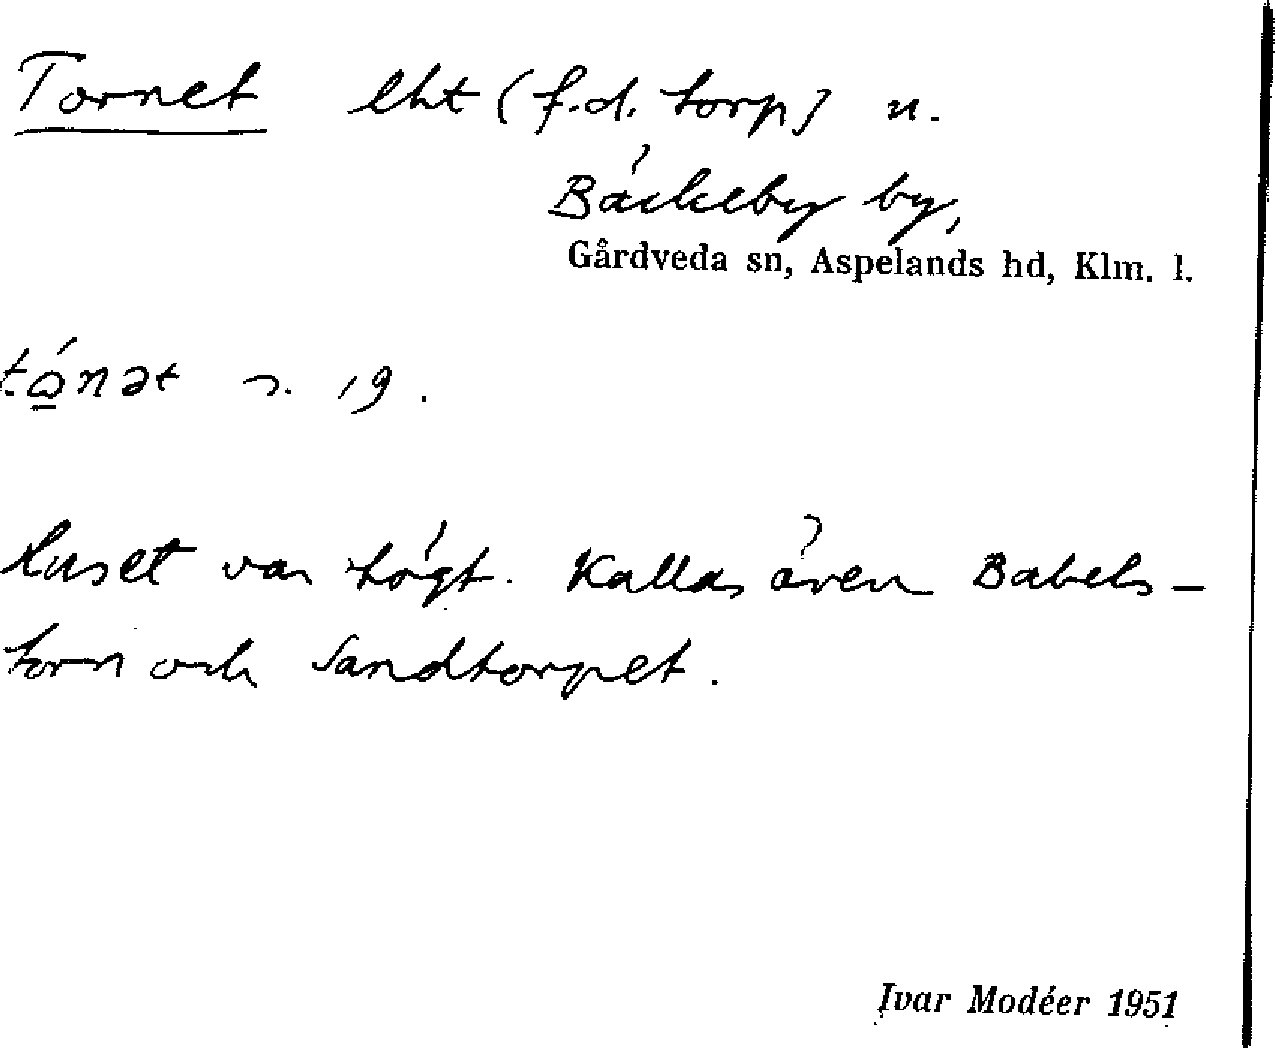 Tornet lht (f.d. torp) u.
Bäckeby by,
Gårdveda sn, Aspelands hd, Klm. l.
tǫ́nət n. 19.
Huset var högt. Kallas även Babels-
torn och Sandtorpet.
Ivar Modéer 1951